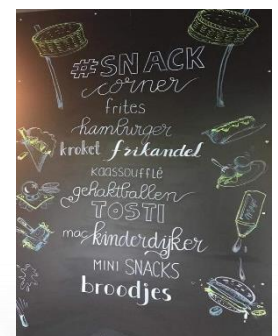 #SNACK
corner
frites
hamburger
kroket frikandel
KAASSOUFFLÉ
gehaktballen
TOSTI
mac kinderdijker
MINI SNACKS
broodjes